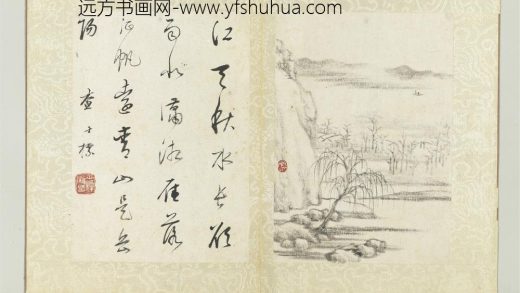 远方书画网-www.yfshuhua.com
江天秋水長欲
雨 瀟湘雁落
帆遠青山是岳
陽 查士標